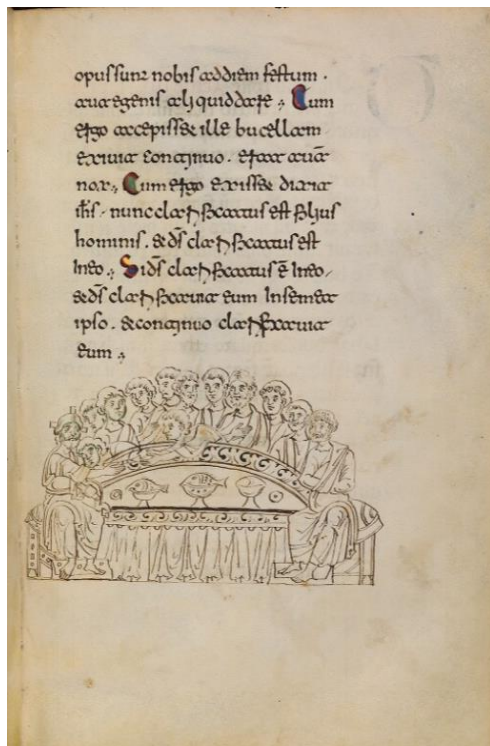 opus sunt nobis ad diem festum ·
aut egenis aliquid daret. Cum
ergo accepisset ille bucellam
exivit continuo. erat autē
nox. Cum ergo exisset dixit
ih̄s. nunc clarificatus est filius
hominis. et d̄s clarificatus est
in eo. Si d̄s clarificatus ē in eo.
et d̄s clarificavit eum in semet
ipso. et continuo clarificavit
eum.